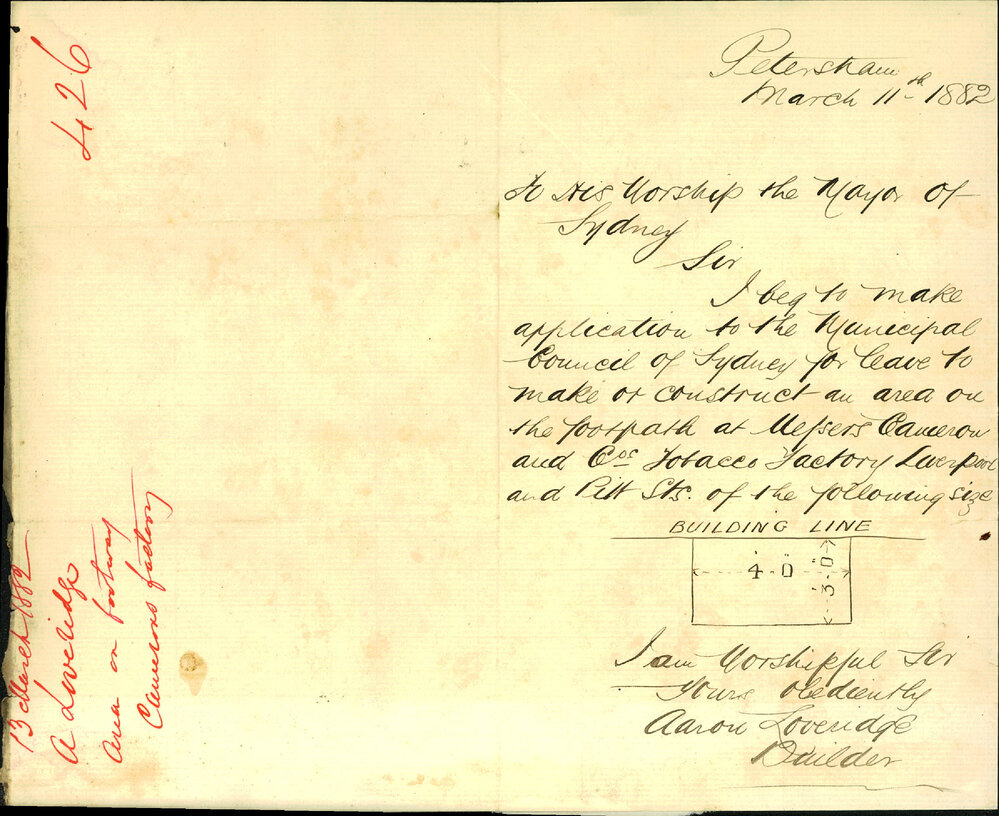 426
13 March 1882
A Loveridge
Area on footway
Camerons factory
Petersham
March 11th 1882
To His Worship the Mayor of
Sydney
Sir
I beg to make
application to the Municipal
Council of Sydney for leave to
make or construct an area on
the footpath at Messers Cameron
and Cos Tobacco Factory Liverpool
and Pitt Sts. of the following size
BUILDING LINE
4'-0"
3'-0"
I am Worshipful Sir
Yours obediently
Aaron Loveridge
Builder